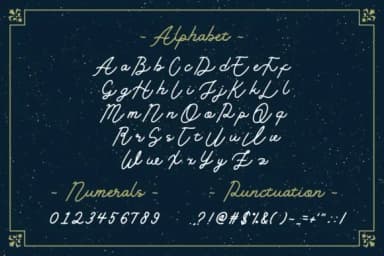 - Alphabet -
A a B b C c D d E e F f x
G g H h I i J j K k L l
M m N n O o P p Q q
R r S s T t U u V v
W w X x Y y Z z
- Numerals -
0 1 2 3 4 5 6 7 8 9
- Punctuation -
? ! @ # $ % & ( ) - _ = + ' " . : ; !